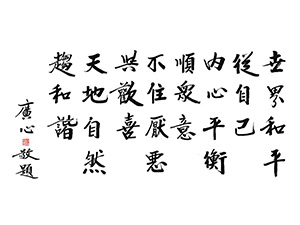 世界和平
從自己
內心平衡
順眾意
不住厭惡
共歡喜
天地自然
趨和諧
廣心敬題